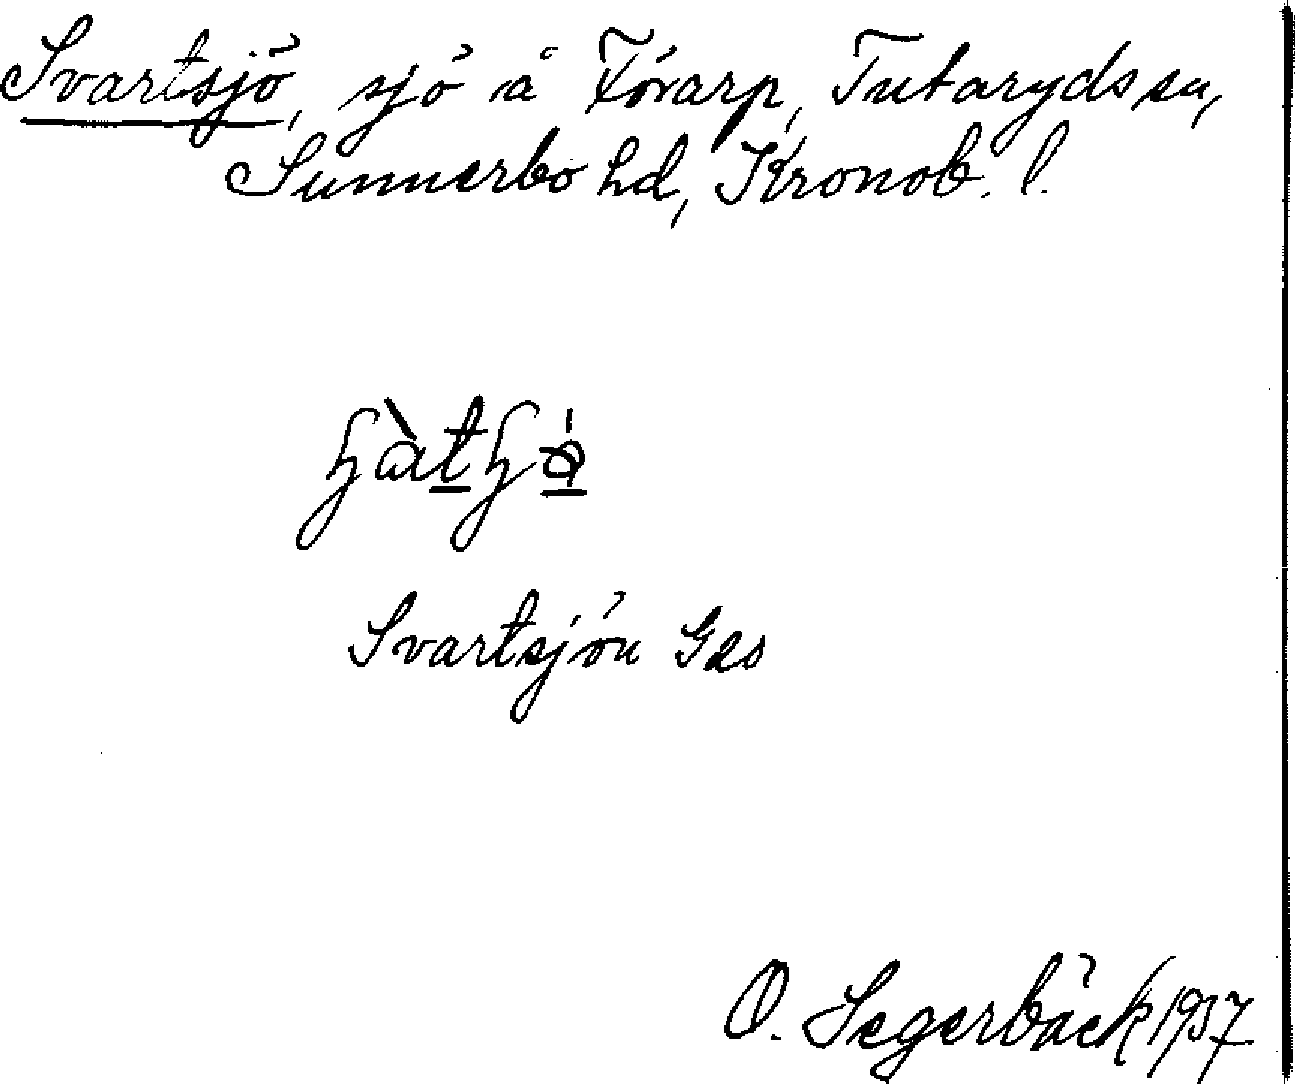 Svartsjö, sjö å Förarp, Tutaryds sn,
Sunnerbo hd, Kronob. l.
Svartsjön Gds
O. Segerbäck 1937